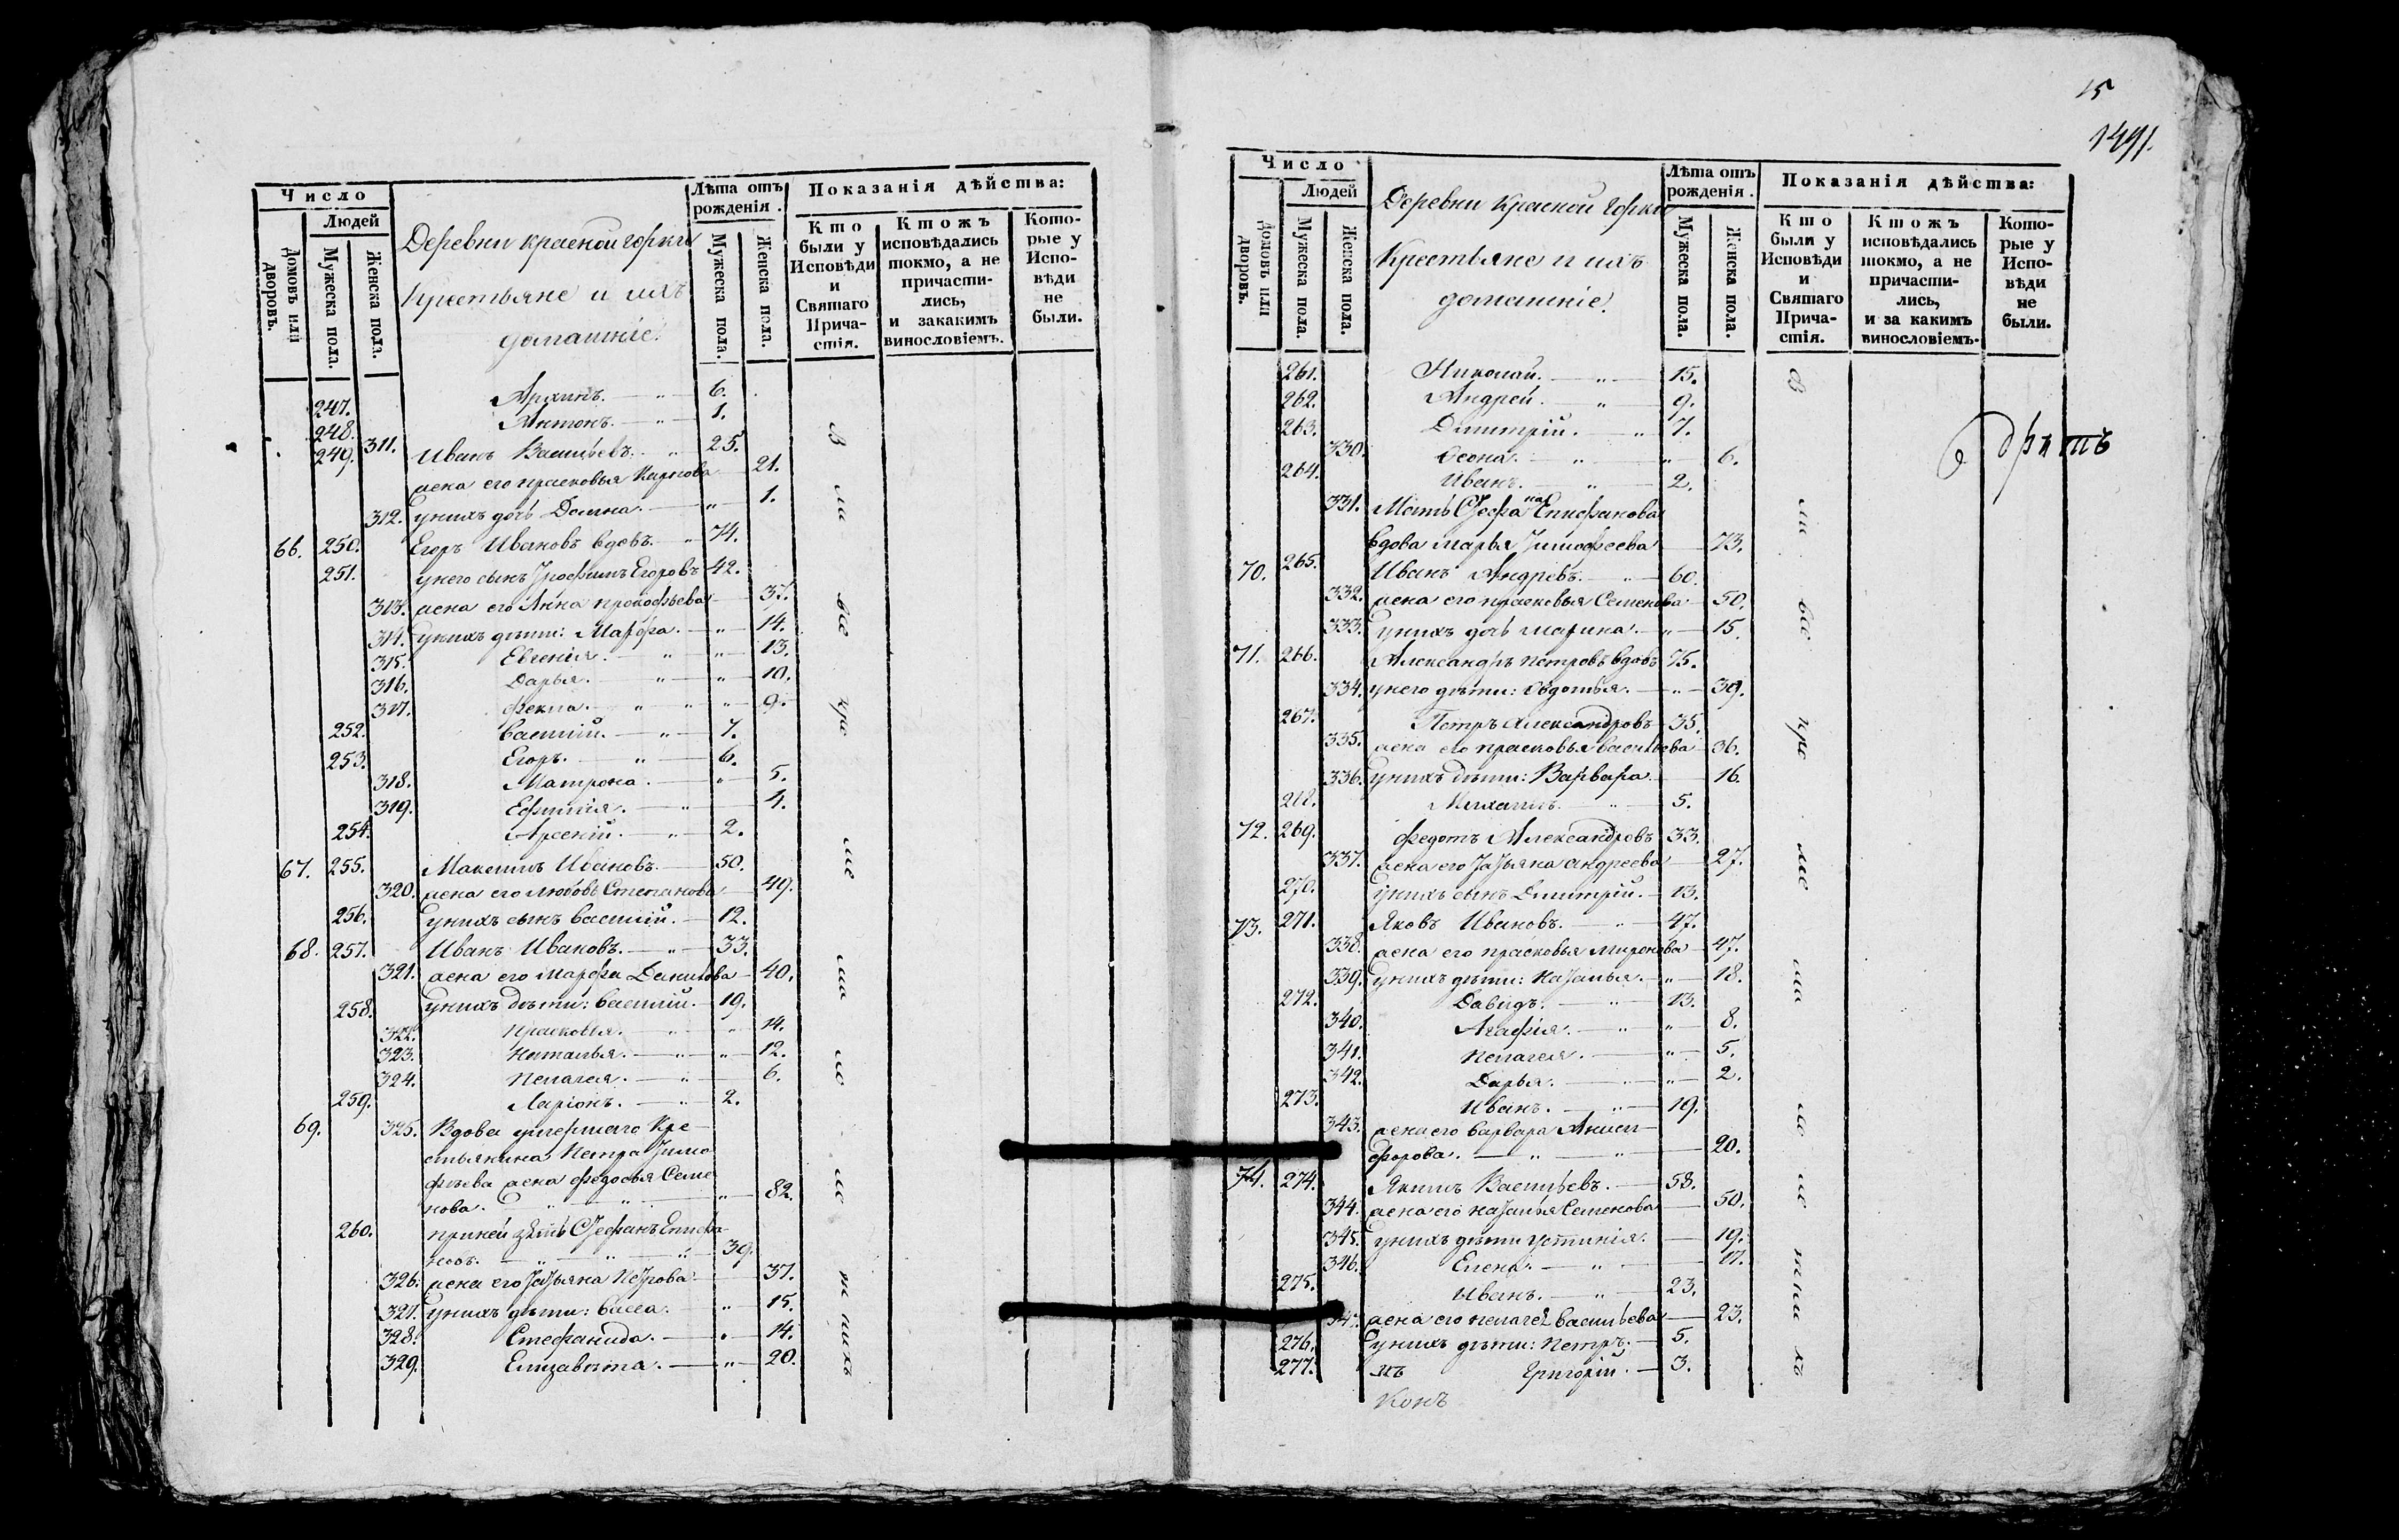 Число
Людей
Домовъ или дворовъ.
Мужеска пола.
Женска пола.
Деревни красной горки
Крестьяне и ихъ
домашніе.
Лѣта отъ рожденія.
Мужеска пола.
Женска пола.
Показанія дѣйства:
Кто были у Исповѣди и Святаго Прича-стія.
Ктожъ исповѣдались токмо, а не причасти-лись, и закакимъ винословіемъ.
Кото-рые у Испо-вѣди не были.
247. Архипъ. 6.
248. Антонъ. 1.
249. Иванъ Васильевъ. 25.
311. жена его прасковья Карпова 21.
312. унихъ дочь Домна. 1.
66. 250. Егоръ Ивановъ вдовъ. 74.
251. унего сынъ Трофимъ Егоровъ 42.
313. жена его Анна прокофьева 37.
314. унихъ дѣти: Марфа. 14.
315. Евгенія. 13.
316. Дарья. 10.
317. Фекла. 9.
252. Василій. 7.
253. Егоръ. 6.
318. Матрона. 5.
319. Ефимія. 4.
254. Арсеній. 2.
67. 255. Максимъ Ивановъ. 50.
320. жена его любовь Степанова 49.
256. унихъ сынъ василій. 12.
68. 257. Иванъ Ивановъ. 33.
321. жена его Марфа Данилова 40.
258. унихъ дѣти: василій. 19.
322. прасковья. 14.
323. наталья. 12.
324. пелагея. 6.
259. Ларіонъ. 2.
69. 325. Вдова умершаго Кре-
стьянина Петра Тимо
фѣева жена федосья Семе
нова. 82.
260. приней зять Стефанъ Епифа-
новъ. 39.
326. жена его татьяна петрова 37.
327. унихъ дѣти: васса. 15.
328. Стефанида. 14.
329. Елизавѣта. 20.
15
1491.
Число
Людей
Домовъ или дворовъ.
Мужеска пола.
Женска пола.
Деревни Красной горки
Крестьяне и ихъ
домашніе.
Лѣта отъ рожденія.
Мужеска пола.
Женска пола.
Показанія дѣйства:
Кто были у Исповѣди и Святаго Прича-стія.
Ктожъ исповѣдались токмо, а не причасти-лись, и за какимъ винословіемъ.
Кото-рые у Испо-вѣди не были.
261. Николай. 15.
262. Андрей. 9.
263. Димитрій. 7.
330. 6.
264. Иванъ. 2.
331. Мать Стефана Епифанова
вдова марья тимофеева 73.
70. 265. Иванъ Андрѣевъ. 60.
332. жена его прасковья Семенова 50.
333. унихъ дочь марина. 15.
71. 266. Александръ петровъ вдовъ 75.
334. унего дѣти: Овдотья. 39.
267. Петръ Александровъ 35.
335. жена его прасковья васильева 36.
336. унихъ дѣти: Варвара. 16.
268. Михаилъ. 5.
72. 269. федотъ Александровъ 33.
337. жена его татьяна андреева 27.
270. унихъ сынъ Димитрій. 13.
73. 271. Яковъ Ивановъ. 47.
338. жена его прасковья миронова 47.
339. унихъ дѣти: наталья. 18.
272. Давидъ. 13.
340. Агафія. 8.
341. пелагея. 5.
342. Дарья. 2.
273. Иванъ. 19.
343. жена его варвара
форова. 20.
74. 274. Якимъ Васильевъ. 58.
344. жена его наталья Семенова 50.
345. унихъ дѣти устинія. 19.
346. Елена. 17.
275. Иванъ. 23.
347. жена его пелагея васильева 23.
276. унихъ дѣти: петръ. 5.
277. Григорій. 3.